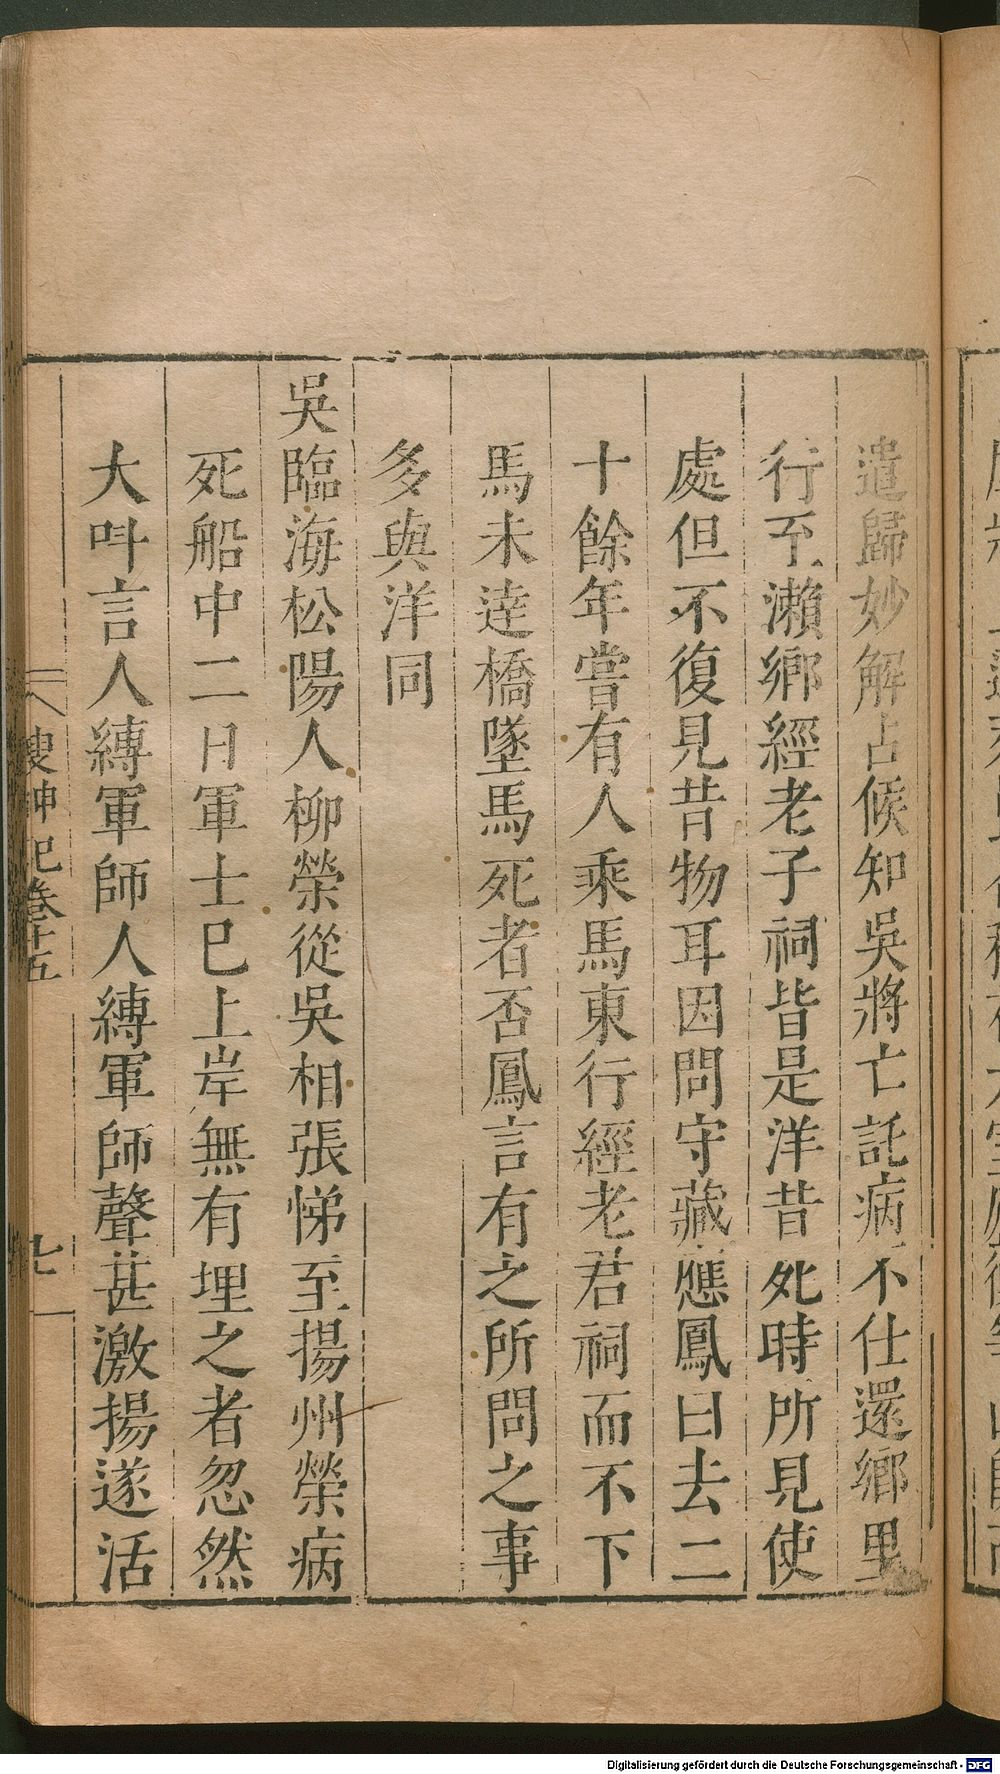 遣歸妙解占候知吳將亡託病不仕還鄉里
行至瀨鄉經老子祠皆是洋昔死時所見使
處但不復見昔物耳因問守藏應鳳曰去二
十餘年嘗有人乘馬東行經老君祠而不下
馬未逹橋墜馬死者否鳳言有之所問之事
多與洋同
吳臨海松陽人柳榮從吳相張悌至揚州榮病
死船中二日軍士已上岸無有埋之者忽然
大呌言人縛軍師人縛軍師聲甚激揚遂活
搜神記卷十五
七
Digitalisierung gefördert durch die Deutsche Forschungsgemeinschaft - DFG